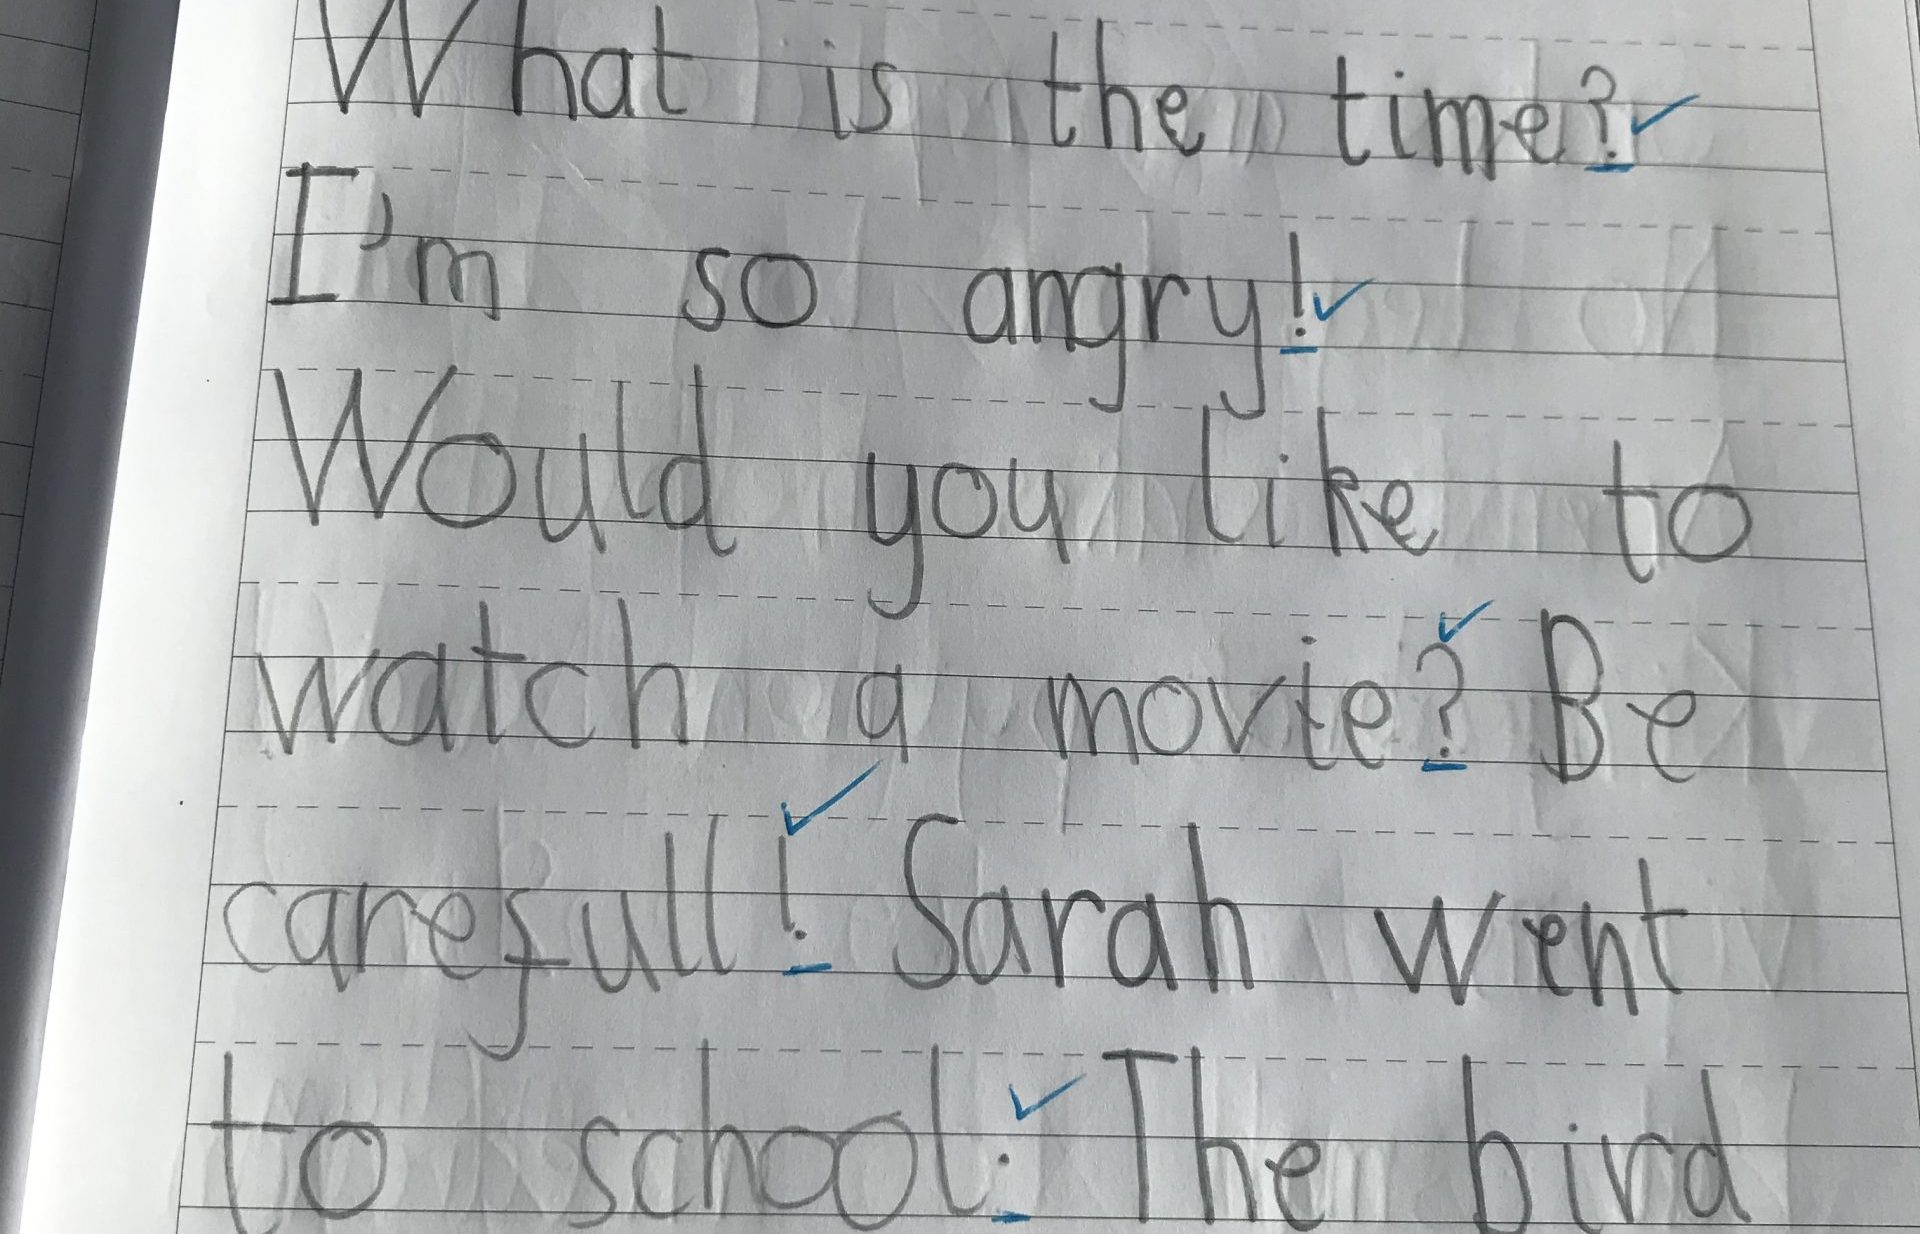 What is the time?
I'm so angry!
Would you like to
watch a movie? Be
carefull! Sarah went
to school. The bird